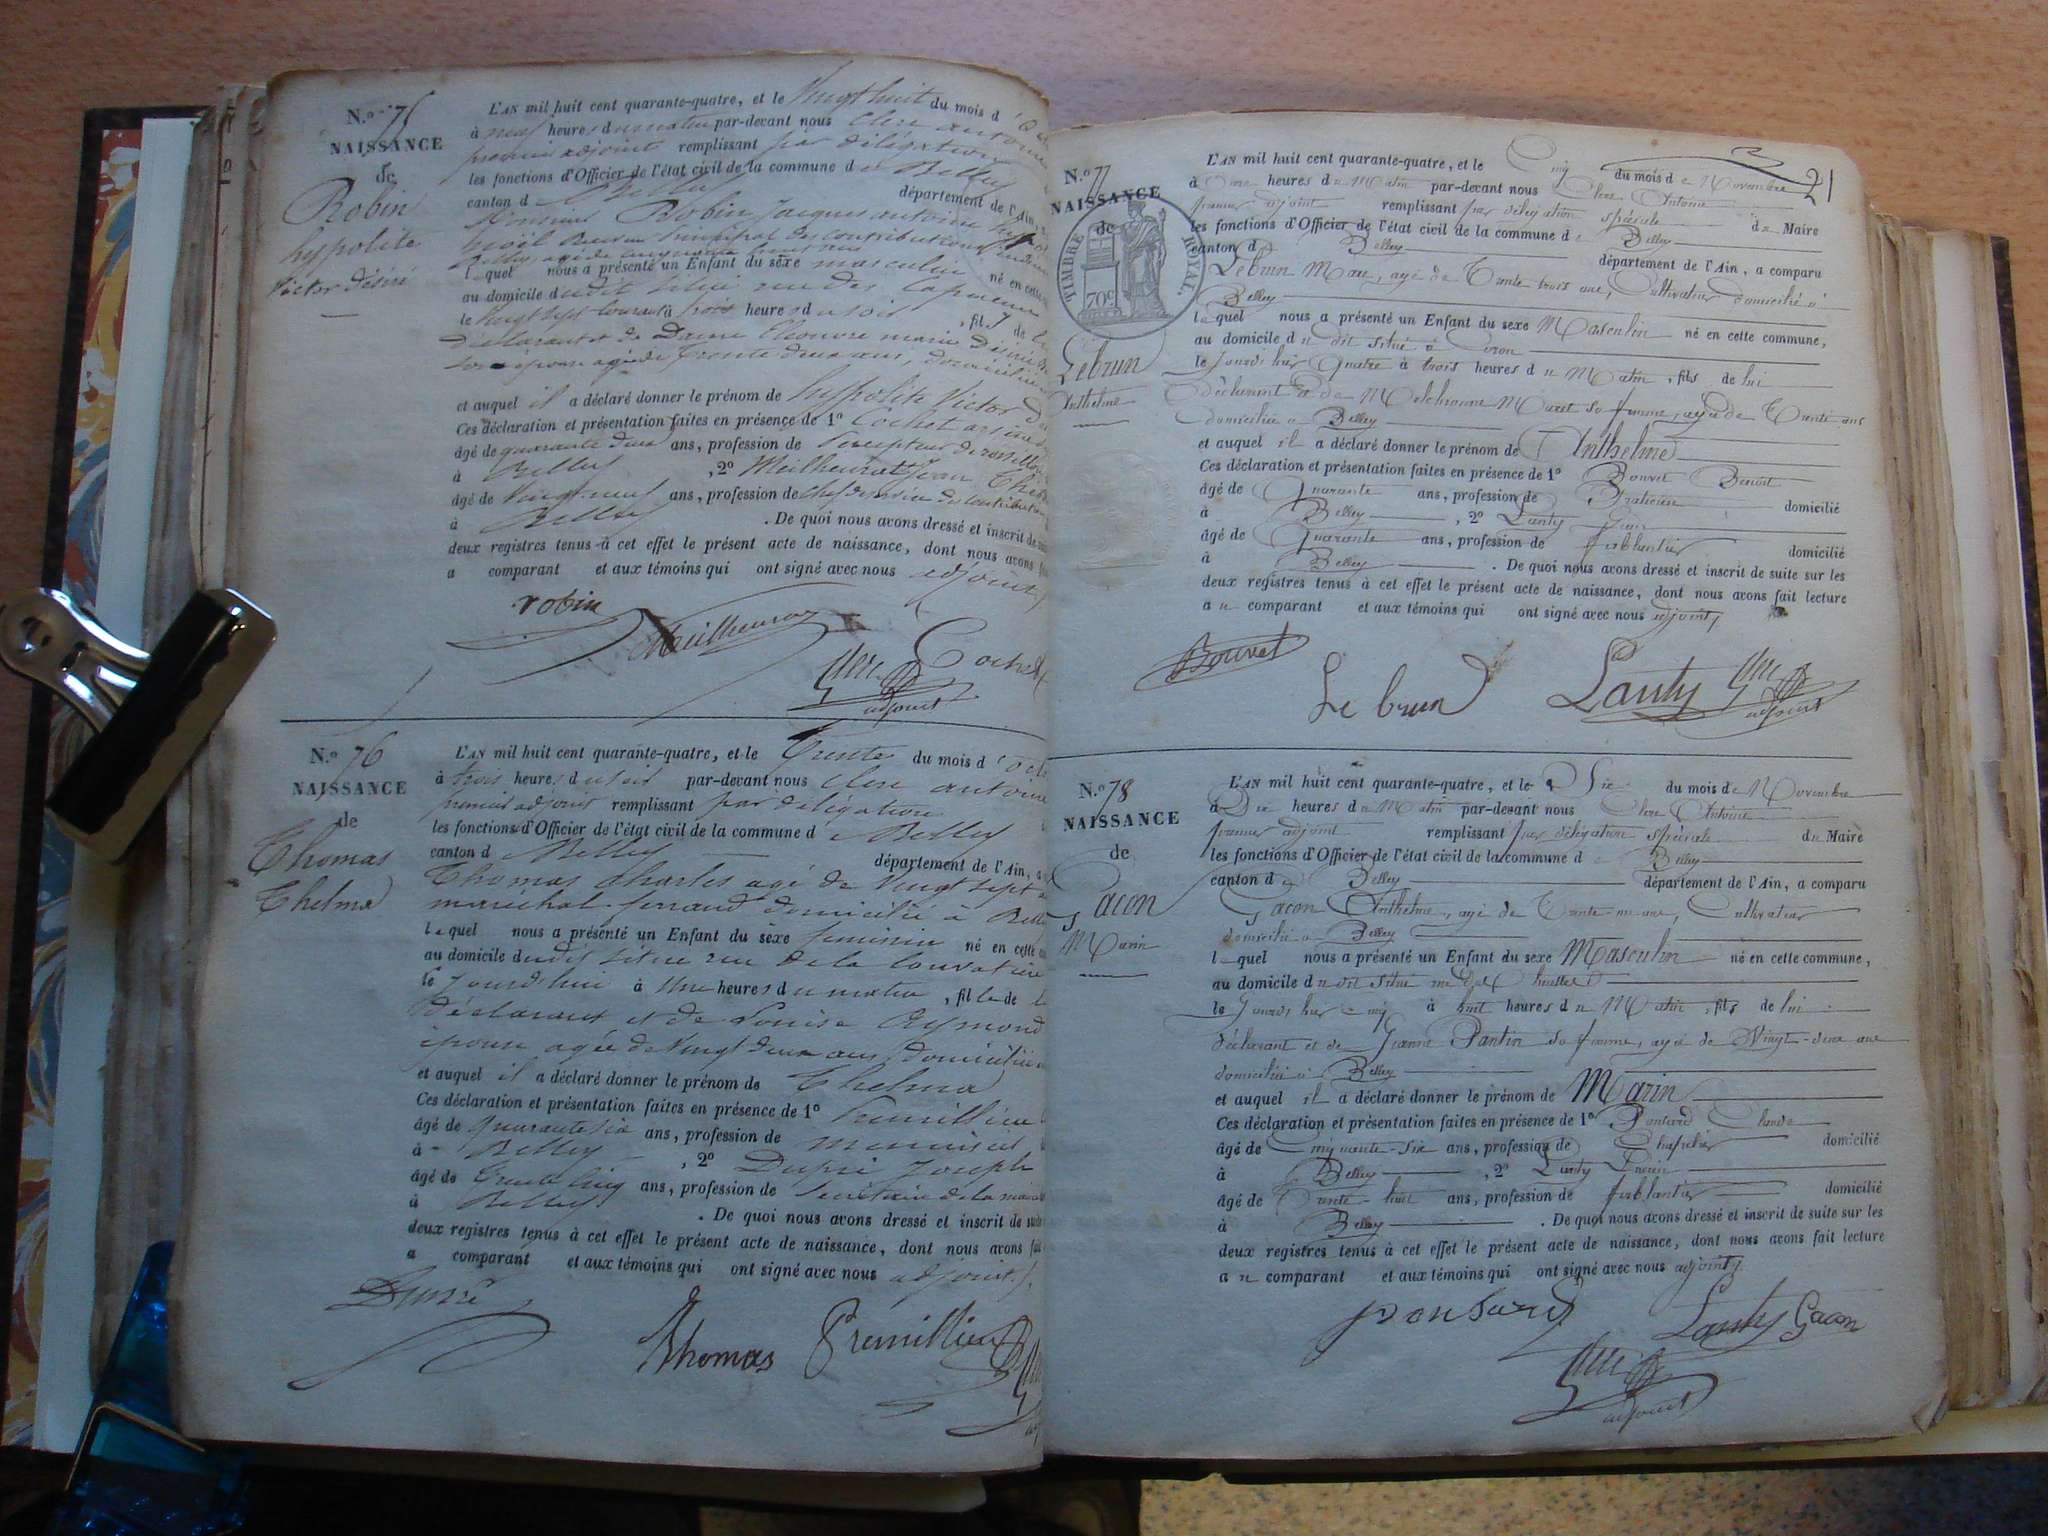 N.o 75
NAISSANCE
de
Robin
hypolite
Victor désiré
L'AN mil huit cent quarante-quatre, et le Vingt huit du mois d'
à neuf heures du matin par-devant nous Clerc antoine
premier adjoint remplissant par délégation
les fonctions d'Officier de l'état civil de la commune de Belley
canton de Belley département de l'Ain
Monsieur Robin Jacques antoine
noël Receveur Principal des contributions
Belley agé de
lequel nous a présenté un Enfant du sexe masculin né en cette
au domicile dudit situé rue des
le Vingt sept courant à trois heures du soir, fils de
déclarant et de Dame Eléonore marie Désirée
son épouse agée de trente deux ans, domiciliée
et auquel il a déclaré donner le prénom de hypolite Victor
Ces déclaration et présentation faites en présence de 1o Cochet
âgé de quarante deux ans, profession de Percepteur de
à Belley, 2o Meilheurat Jean
âgé de Vingt neuf ans, profession de
à Belley. De quoi nous avons dressé et inscrit de
deux registres tenus à cet effet le présent acte de naissance, dont nous avons
a comparant et aux témoins qui ont signé avec nous adjoint
robin
Meilheurat
Cochet
Clerc
adjoint
N.o 76
NAISSANCE
de
Thomas
Thelma
L'AN mil huit cent quarante-quatre, et le Trente du mois d'
à trois heures du soir par-devant nous Clerc antoine
premier adjoint remplissant par délégation
les fonctions d'Officier de l'état civil de la commune de Belley
canton d Belley département de l'Ain, a
Thomas Charles agé de Vingt sept
maréchal ferrand domicilié à
lequel nous a présenté un Enfant du sexe féminin né en cette
au domicile dudit situé rue de la
le Jourd'hui à une heures du matin, fille de
déclarant et de Louise Aymond
épouse agée de Vingt deux ans, domiciliée
et auquel il a déclaré donner le prénom de Thelma
Ces déclaration et présentation faites en présence de 1o Prémillieu
âgé de quarante six ans, profession de menuisier
à Belley, 2o Dupré Joseph
âgé de Trente cinq ans, profession de Secrétaire de la
à Belley. De quoi nous avons dressé et inscrit de suite
deux registres tenus à cet effet le présent acte de naissance, dont nous avons fait
a comparant et aux témoins qui ont signé avec nous adjoint
Dupré
Thomas
Prémillieu
21
N.o 77
NAISSANCE
de
TIMBRE ROYAL.
70c
Lebrun
Anthelme
L'AN mil huit cent quarante-quatre, et le Cinq du mois de Novembre
à heures du Matin par-devant nous Clerc Antoine
premier adjoint remplissant par délégation spéciale du Maire
les fonctions d'Officier de l'état civil de la commune de Belley
canton d Belley département de l'Ain, a comparu
Lebrun Marc, agé de Trente trois ans, Cultivateur domicilié à
Belley
lequel nous a présenté un Enfant du sexe Masculin né en cette commune,
au domicile du dit situé à Coron
le Jourd'hui Quatre à trois heures du Matin, fils de lui
déclarant et de Muret sa femme, agée de Trente ans
domiciliée à Belley
et auquel il a déclaré donner le prénom de Anthelme
Ces déclaration et présentation faites en présence de 1o Bouvet Benoît
âgé de Quarante ans, profession de Praticien domicilié
à Belley, 2o Lanty
âgé de Quarante ans, profession de ferblantier domicilié
à Belley. De quoi nous avons dressé et inscrit de suite sur les
deux registres tenus à cet effet le présent acte de naissance, dont nous avons fait lecture
au comparant et aux témoins qui ont signé avec nous adjoint
Bouvet
Le brun
Lanty
Clerc
adjoint
N.o 78
NAISSANCE
de
Gacon
Marin
L'AN mil huit cent quarante-quatre, et le Six du mois de Novembre
à Dix heures du Matin par-devant nous Clerc Antoine
premier adjoint remplissant par délégation spéciale du Maire
les fonctions d'Officier de l'état civil de la commune d Belley
canton de Belley département de l'Ain, a comparu
Gacon Anthelme, agé de Trente ans, Cultivateur
domicilié à Belley
lequel nous a présenté un Enfant du sexe Masculin né en cette commune,
au domicile du dit situé
le Jourd'hui cinq à huit heures du Matin, fils de lui
déclarant et de Jeanne Pantin sa femme, agée de Vingt-deux ans
domiciliée à Belley
et auquel il a déclaré donner le prénom de Marin
Ces déclaration et présentation faites en présence de 1o Ponsard Claude
âgé de Cinquante-Six ans, profession de Chapelier domicilié
à Belley, 2o Lanty
âgé de Trente-huit ans, profession de ferblantier domicilié
à Belley. De quoi nous avons dressé et inscrit de suite sur les
deux registres tenus à cet effet le présent acte de naissance, dont nous avons fait lecture
au comparant et aux témoins qui ont signé avec nous adjoint
ponsard
Lanty
Gacon
Clerc
adjoint